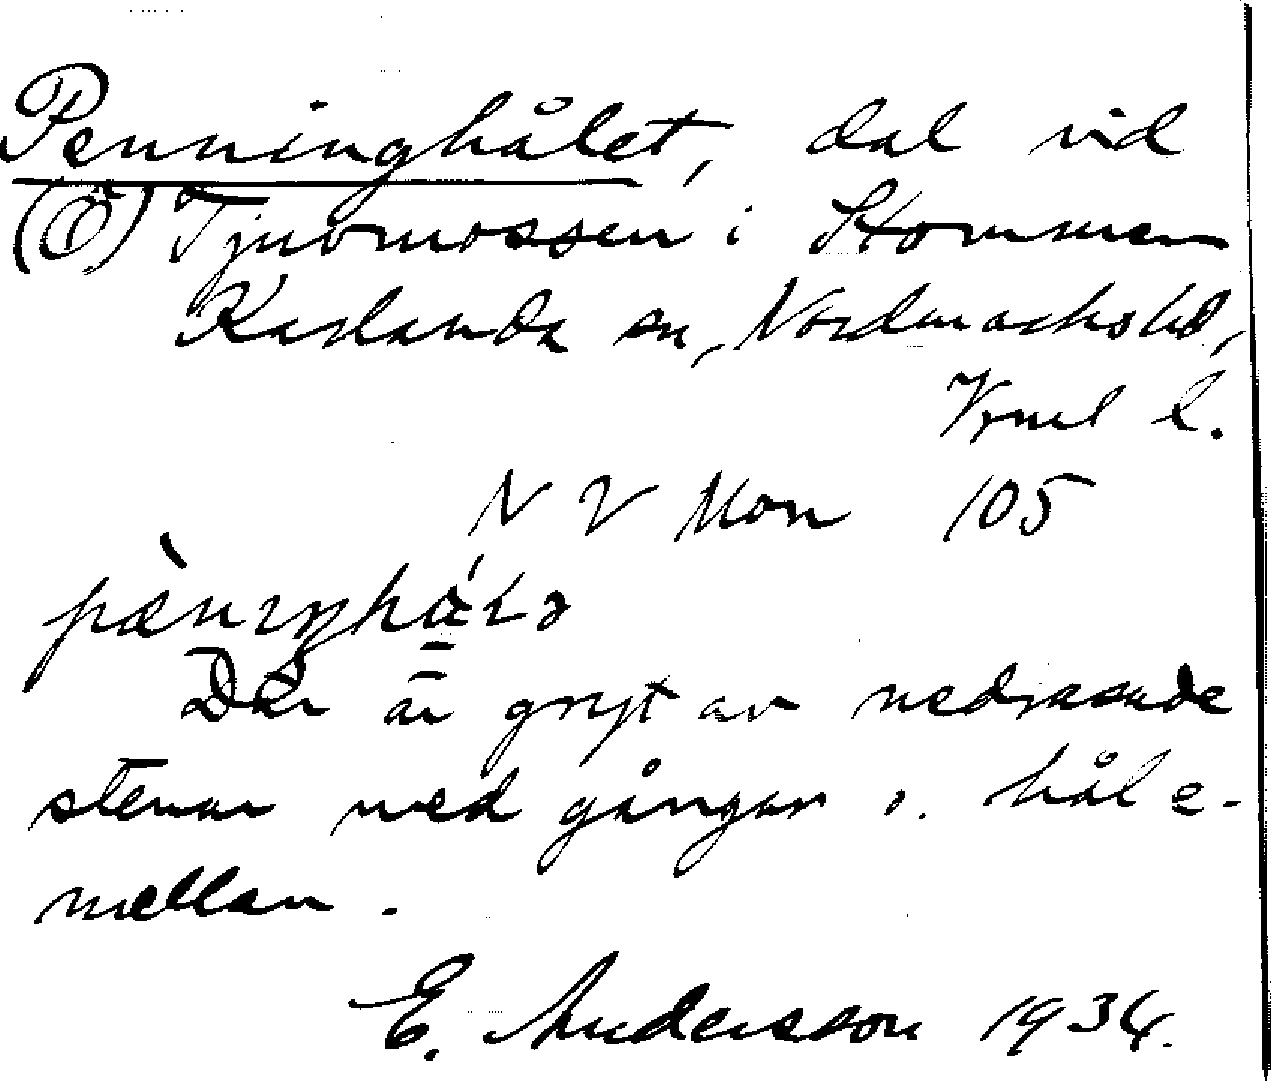 Penninghålet, dal vid
(Ö) Tjuvmossen i Stommen
Karlanda sn, Nordmarks hd,
Vrml l.
N V Mon 105
pæ̀nıŋhá̤lə
Där är gryt av nedrasade
stenar med gångar o. hål e-
mellan.
E. Andersson 1934.